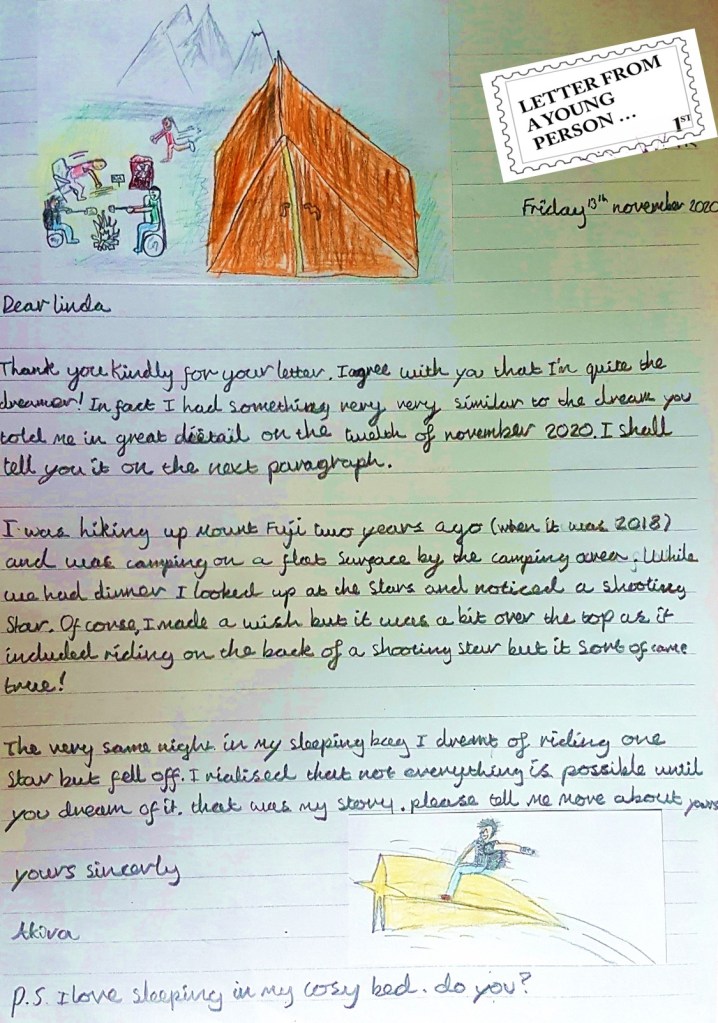 LETTER FROM
A YOUNG
PERSON ...
1ST
Friday 13th november 2020
Dear linda
Thank you kindly for your letter. I agree with you that I'm quite the
dreamer! In fact I had something very very similar to the dream you
told me in great dietail on the twelth of november 2020. I shall
tell you it on the next paragraph.
I was hiking up Mount Fuji two years ago (when it was 2018)
and was camping on a flat surface by the camping area. While
we had dinner I looked up at the stars and noticed a shooting
star. Of corse, I made a wish but it was a bit over the top as it
included riding on the back of a shooting star but it sort of came
true!
The very same night in my sleeping bag I dreamt of riding one
star but fell off. I rialised that not everything is possible until
you dream of it. that was my story. please tell me more about yours
yours sincerly
Akira
P.S. I love sleeping in my cosy bed. do you?